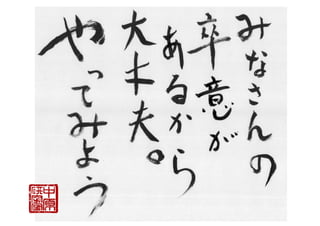 みなさんの
卒意が
あるから
大丈夫。
やってみよう